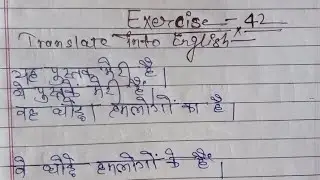 Exercise - 42
Translate Into English
यह पुस्तक मेरी है।
ये पुस्तकें मेरी हैं।
वह घोड़ा हमलोगों का है।
वे घोड़े हमलोगों के हैं।